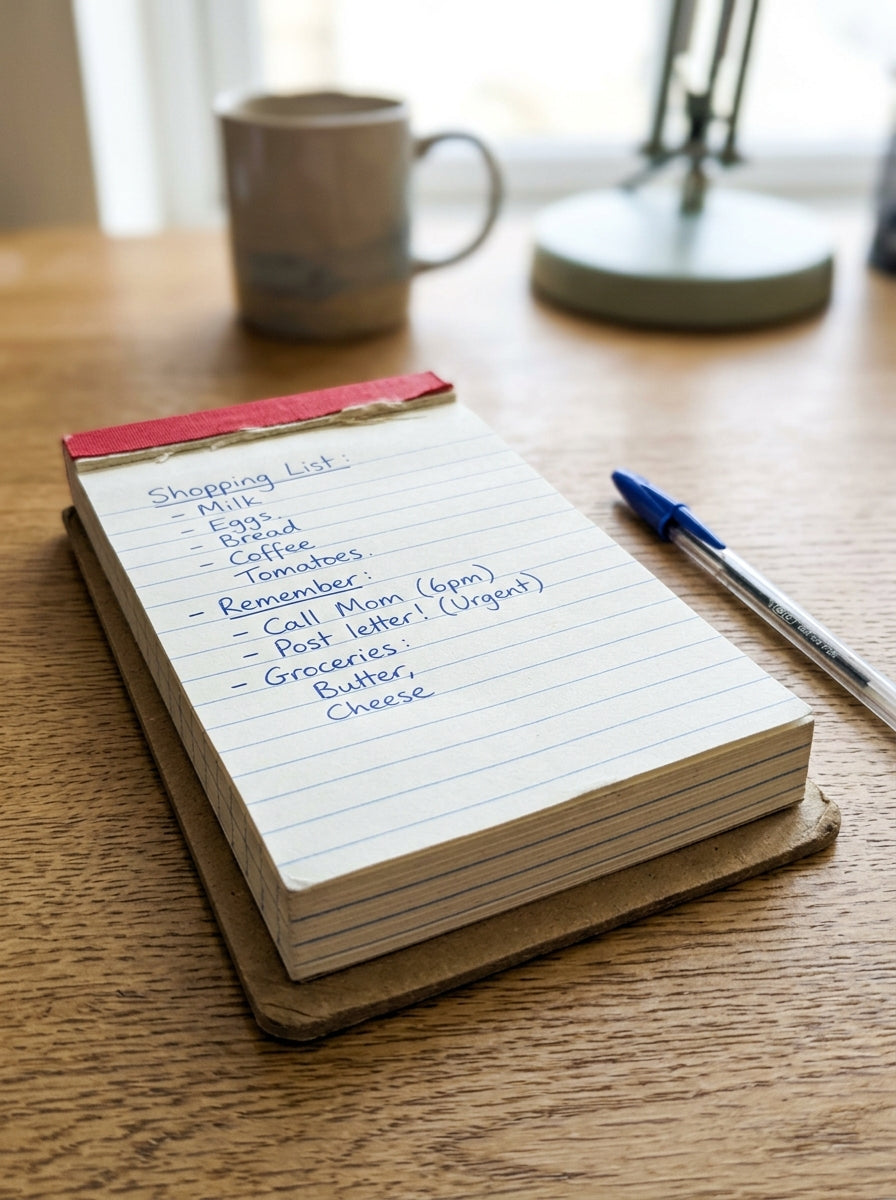 Shopping List:
- Milk
- Eggs.
- Bread
- Coffee
Tomatoes.
- Remember:
- Call Mom (6pm)
- Post letter! (Urgent)
- Groceries:
Butter,
Cheese